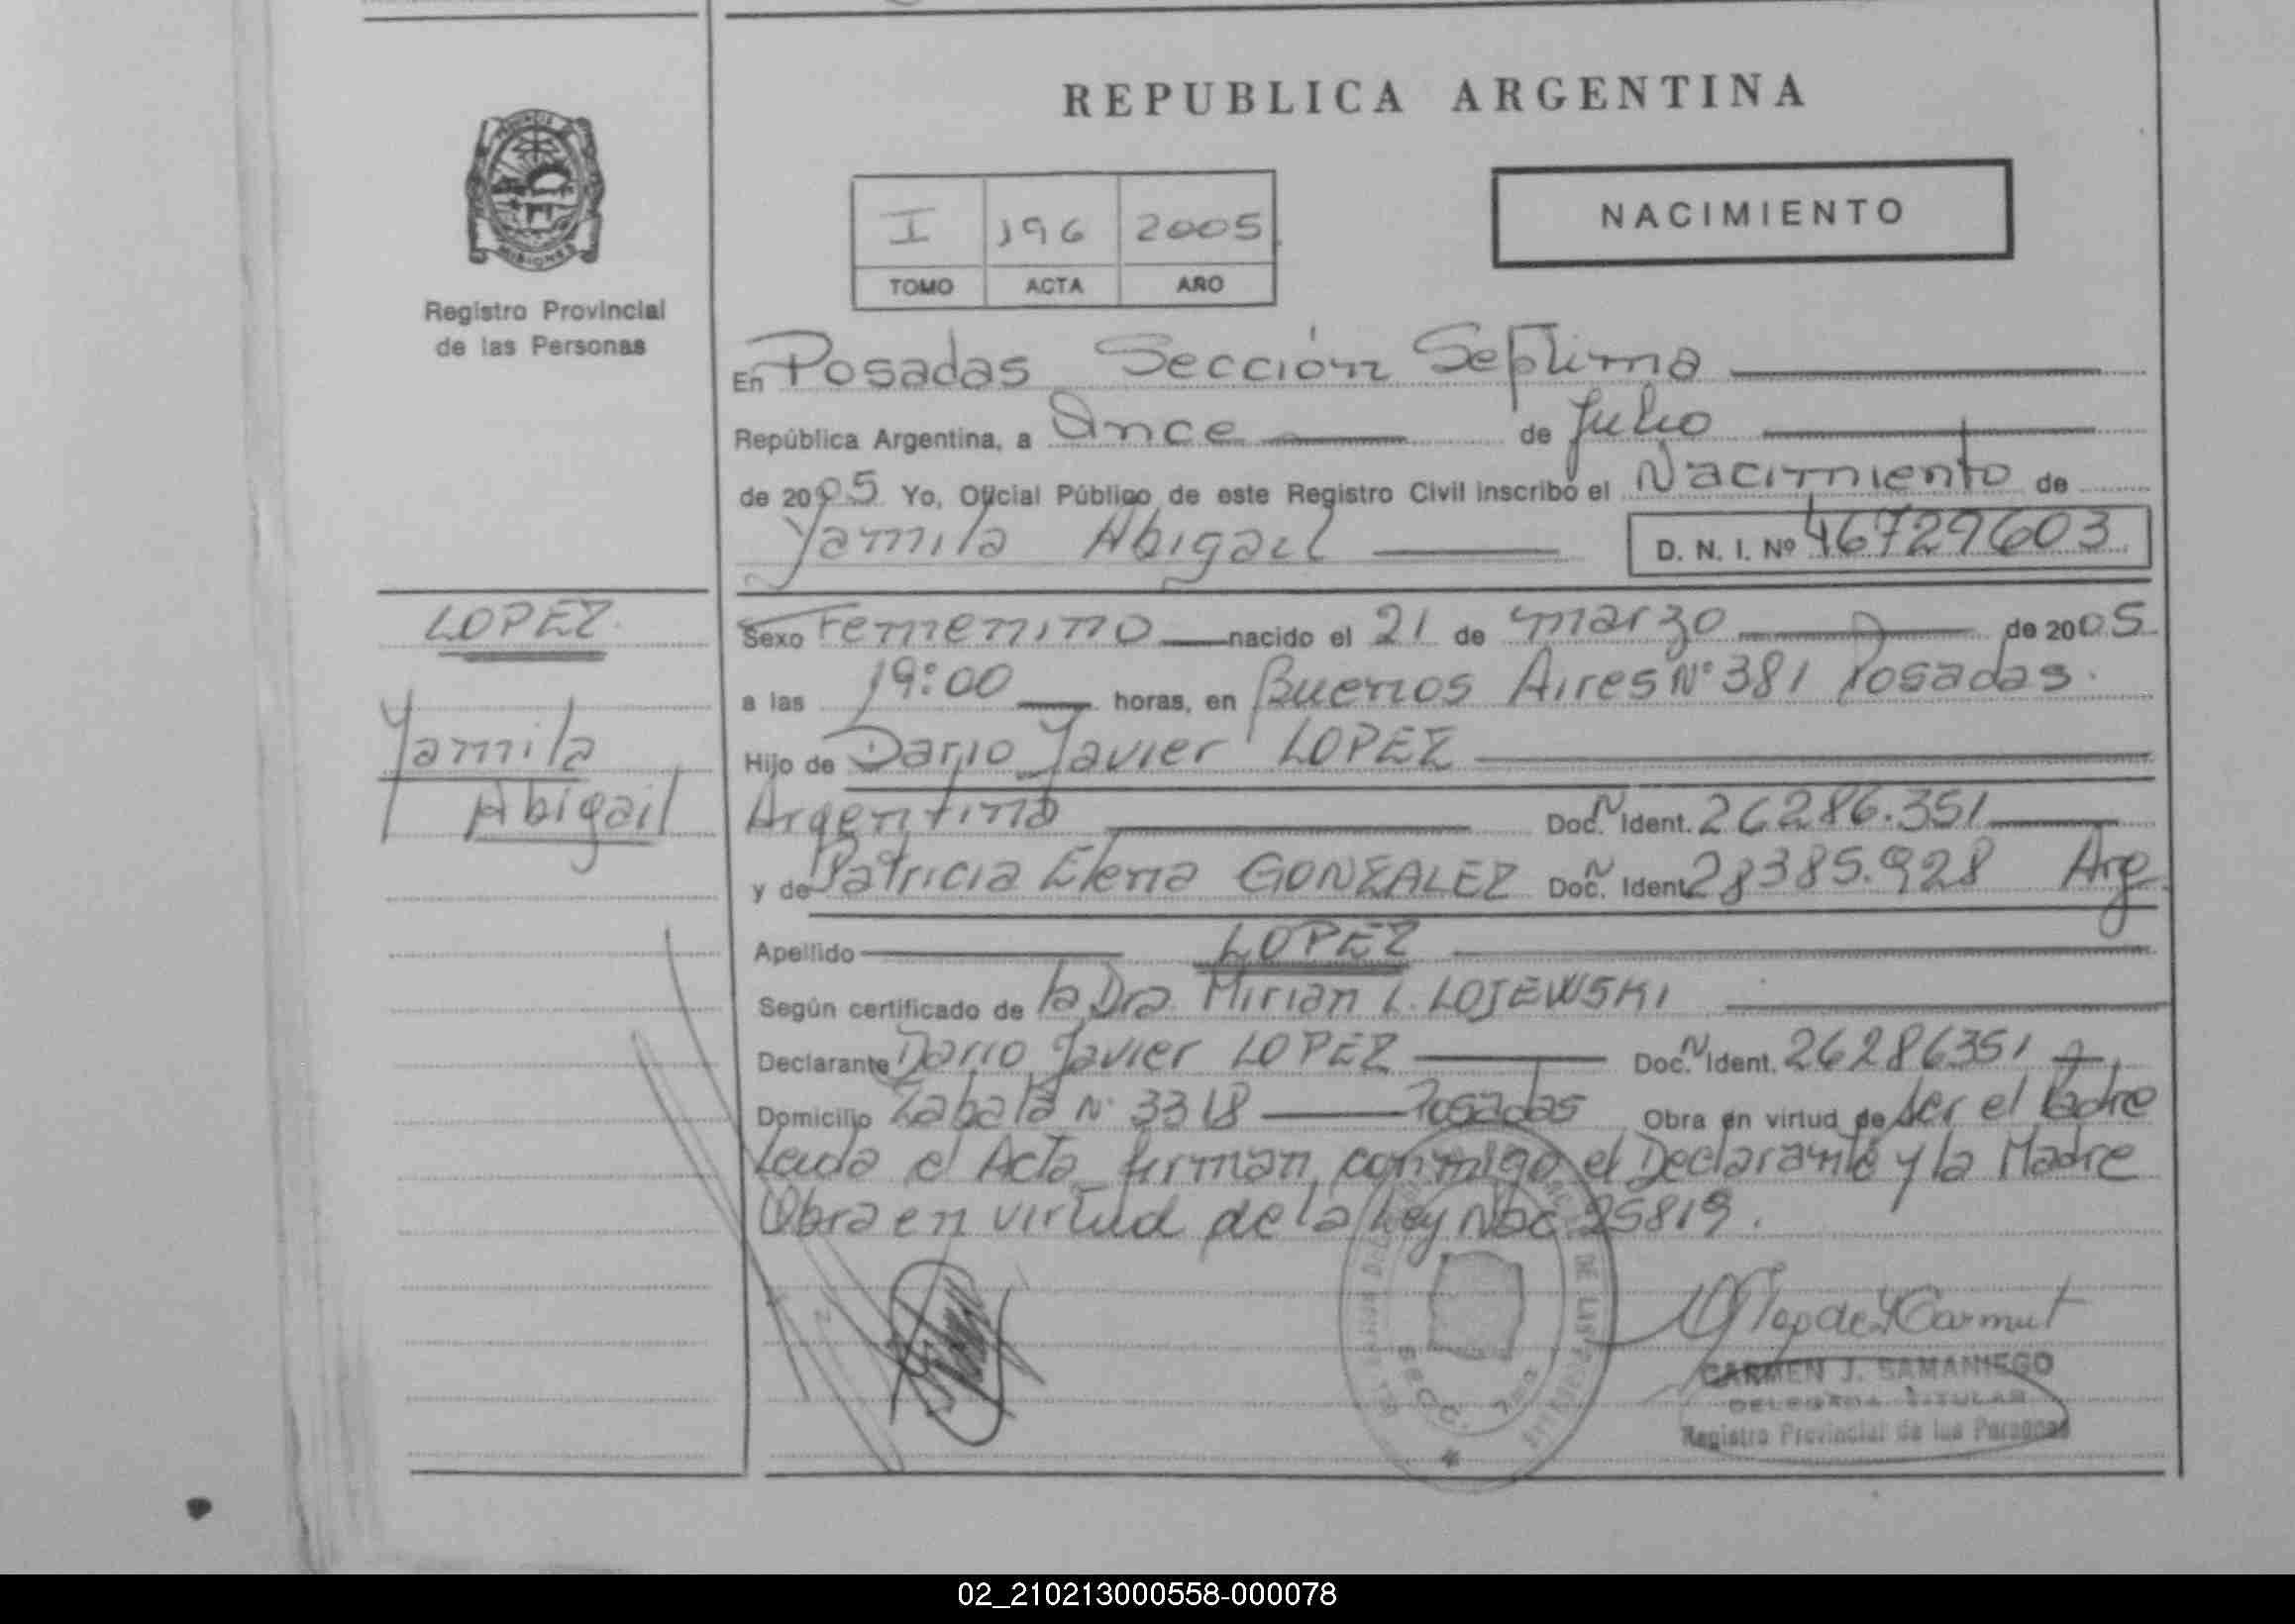 REPUBLICA ARGENTINA
PROVINCIA DE
MISIONES
Registro Provincial
de las Personas
I 196 2005
TOMO ACTA AÑO
NACIMIENTO
En Posadas Sección Septima
República Argentina, a Once de Julio
de 2005 Yo, Oficial Público de este Registro Civil inscribo el Nacimiento de
Yamila Abigail D. N. I. Nº 46729603
LOPEZ
Yamila
Abigail
Sexo Femenino nacido el 21 de marzo de 2005
a las 19:00 horas, en Buenos Aires Nº 381 Posadas.
Hijo de Dario Javier LOPEZ
Argentino Doc. N Ident. 26286.351
y de Patricia Elena GONZALEZ Doc. N Ident 28385.928 Arg
Apellido LOPEZ
Según certificado de la Dra Mirian L. LOJEWSKI
Declarante Dario Javier LOPEZ Doc. N Ident. 26286351
Domicilio Zabala Nº 3318 Posadas Obra en virtud de ser el Padre
Leida el Acta firman conmigo el Declarante y la Madre
Obra en virtud de la Ley Nac 25819.
DE LAS
SECC. 7ma
CARMEN J. SAMANIEGO
DELEGADA TITULAR
Registro Provincial de las Personas
02_210213000558-000078